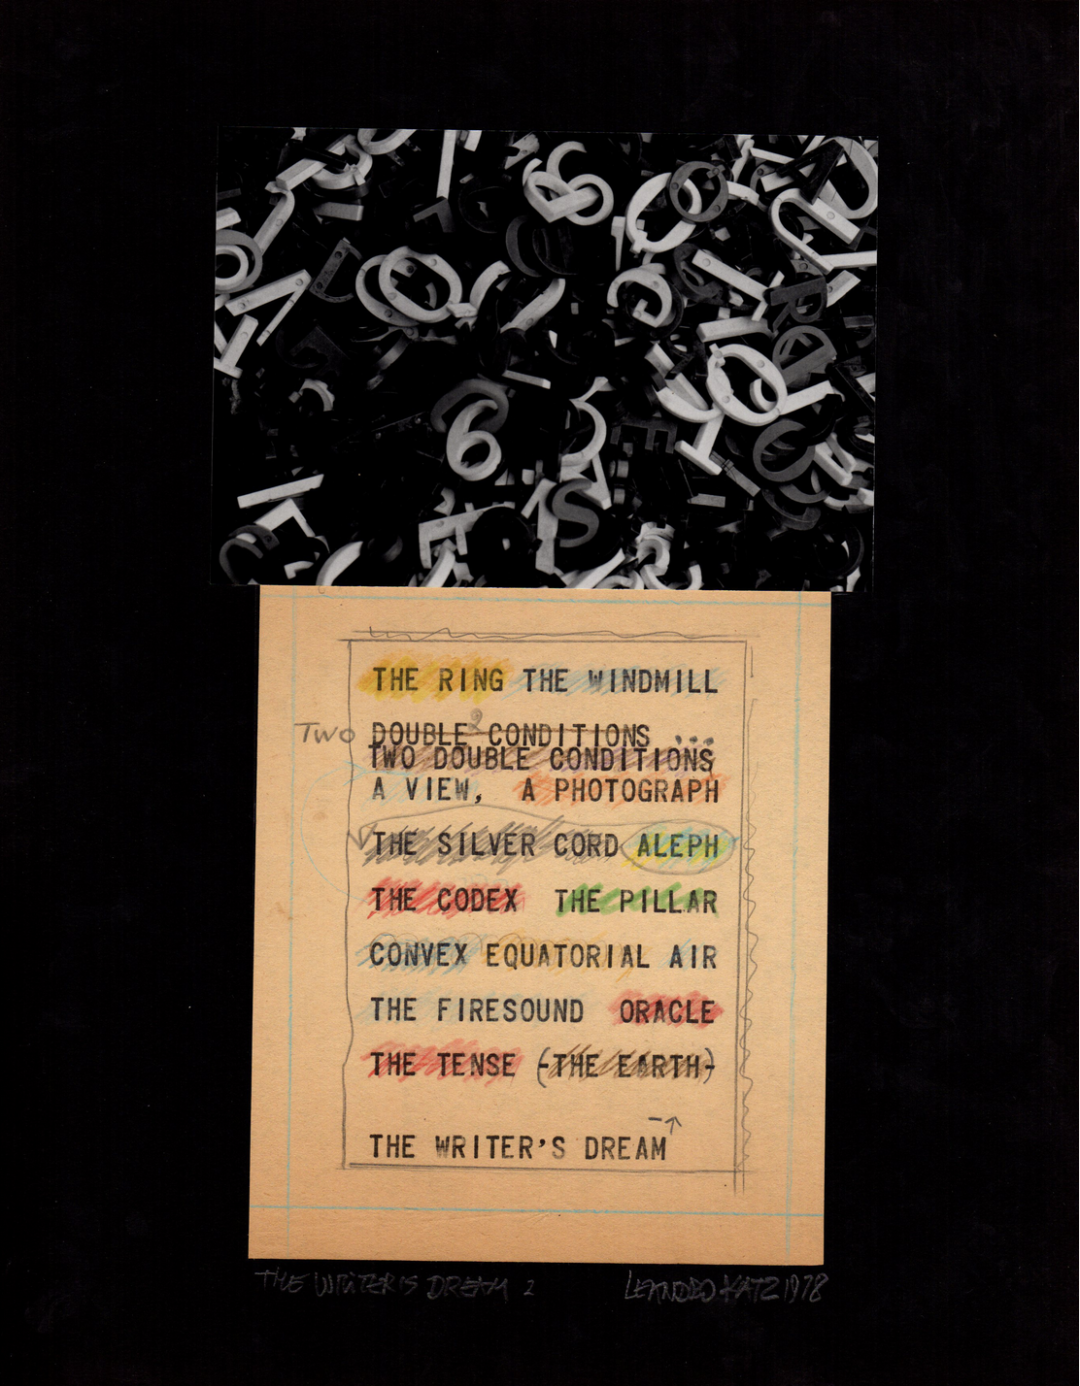 THE RING THE WINDMILL
2
Two DOUBLE CONDITIONS ...
TWO DOUBLE CONDITIONS
A VIEW, A PHOTOGRAPH
THE SILVER CORD ALEPH
THE CODEX THE PILLAR
CONVEX EQUATORIAL AIR
THE FIRESOUND ORACLE
THE TENSE (-THE EARTH-)
THE WRITER'S DREAM
THE WRITER'S DREAM 2 LEANDRO KATZ 1978